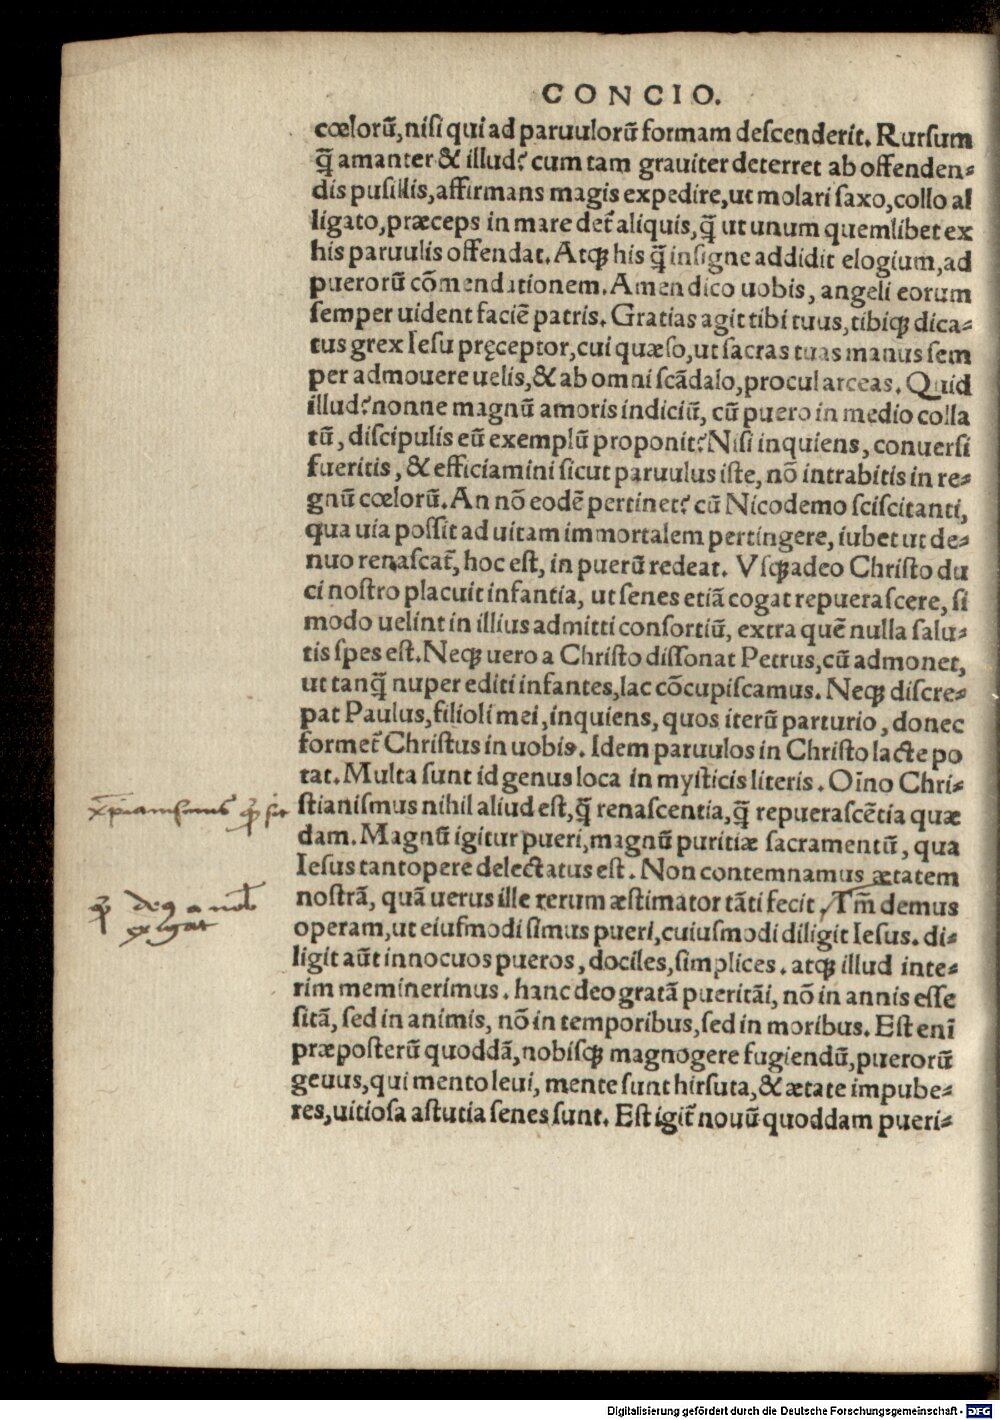 CONCIO.
cœlorū, niſi qui ad paruulorū formam deſcenderit. Rurſum
q̄̃ amanter & illud? cum tam grauiter deterret ab offenden⸗
dis puſillis, affirmans magis expedire, ut molari ſaxo, collo al
ligato, præceps in mare det̃ aliquis, q̄̃ ut unum quemlibet ex
his paruulis offendat. Atqꝫ his q̄̃ inſigne addidit elogium, ad
puerorū cōmendationem. Amen dico uobis, angeli eorum
ſemper uident faciē patris. Gratias agit tibi tuus, tibiqꝫ dica⸗
tus grex Ieſu pręceptor, cui quæſo, ut ſacras tuas manus ſem
per admouere uelis, & ab omni ſcādalo, procul arceas. Quid
illud? nonne magnū amoris indiciū, cū puero in medio colla
tū, diſcipulis eū exemplū proponit? Niſi inquiens, conuerſi
fueritis, & efficiamini ſicut paruulus iſte, nō intrabitis in re⸗
gnū cœlorū. An nō eodē pertinet? cū Nicodemo ſciſcitanti,
qua uia poſſit ad uitam immortalem pertingere, iubet ut de⸗
nuo renaſcat̃, hoc eſt, in puerū redeat. Vſqꝫadeo Chriſto du
ci noſtro placuit infantia, ut ſenes etiā cogat repueraſcere, ſi
modo uelint in illius admitti conſortiū, extra quē nulla ſalu⸗
tis ſpes eſt. Neqꝫ uero a Chriſto diſſonat Petrus, cū admonet,
ut tanq̄̃ nuper editi infantes, lac cōcupiſcamus. Neqꝫ diſcre⸗
pat Paulus, filioli mei, inquiens, quos iterū parturio, donec
formet̃ Chriſtus in uobis. Idem paruulos in Chriſto lacte po
tat. Multa ſunt id genus loca in myſticis literis. Oīno Chri⸗
ſtianiſmus nihil aliud eſt, q̄̃ renaſcentia, q̄̃ repueraſcētia quæ
dam. Magnū igitur pueri, magnū puritiæ ſacramentū, qua
Ieſus tantopere delectatus eſt. Non contemnamus ætatem
noſtrā, quā uerus ille rerum æſtimator tāti fecit, Tm̄ demus
operam, ut eiuſmodi ſimus pueri, cuiuſmodi diligit Ieſus. di⸗
ligit aūt innocuos pueros, dociles, ſimplices. atqꝫ illud inte⸗
rim meminerimus. hanc deo gratā pueritāi, nō in annis eſſe
ſitā, ſed in animis, nō in temporibus, ſed in moribus. Eſt enī
præpoſterū quoddā, nobiſqꝫ magnogere fugiendū, puerorū
geuus, qui mento leui, mente ſunt hirſuta, & ætate impube⸗
res, uitioſa aſtutia ſenes ſunt. Eſt igit̃ nouū quoddam pueri⸗
Digitalisierung gefördert durch die Deutsche Forschungsgemeinschaft - DFG